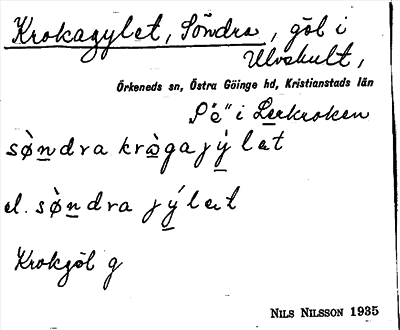 Krokagylet, Söndra, göl i
Ulvshult,
Örkeneds sn, Östra Göinge hd, Kristianstads län
i Lerkroken
sø̀ndra kràgajýlet
el. sø̀ndra jýlet
Krokgöl g
NILS NILSSON 1935